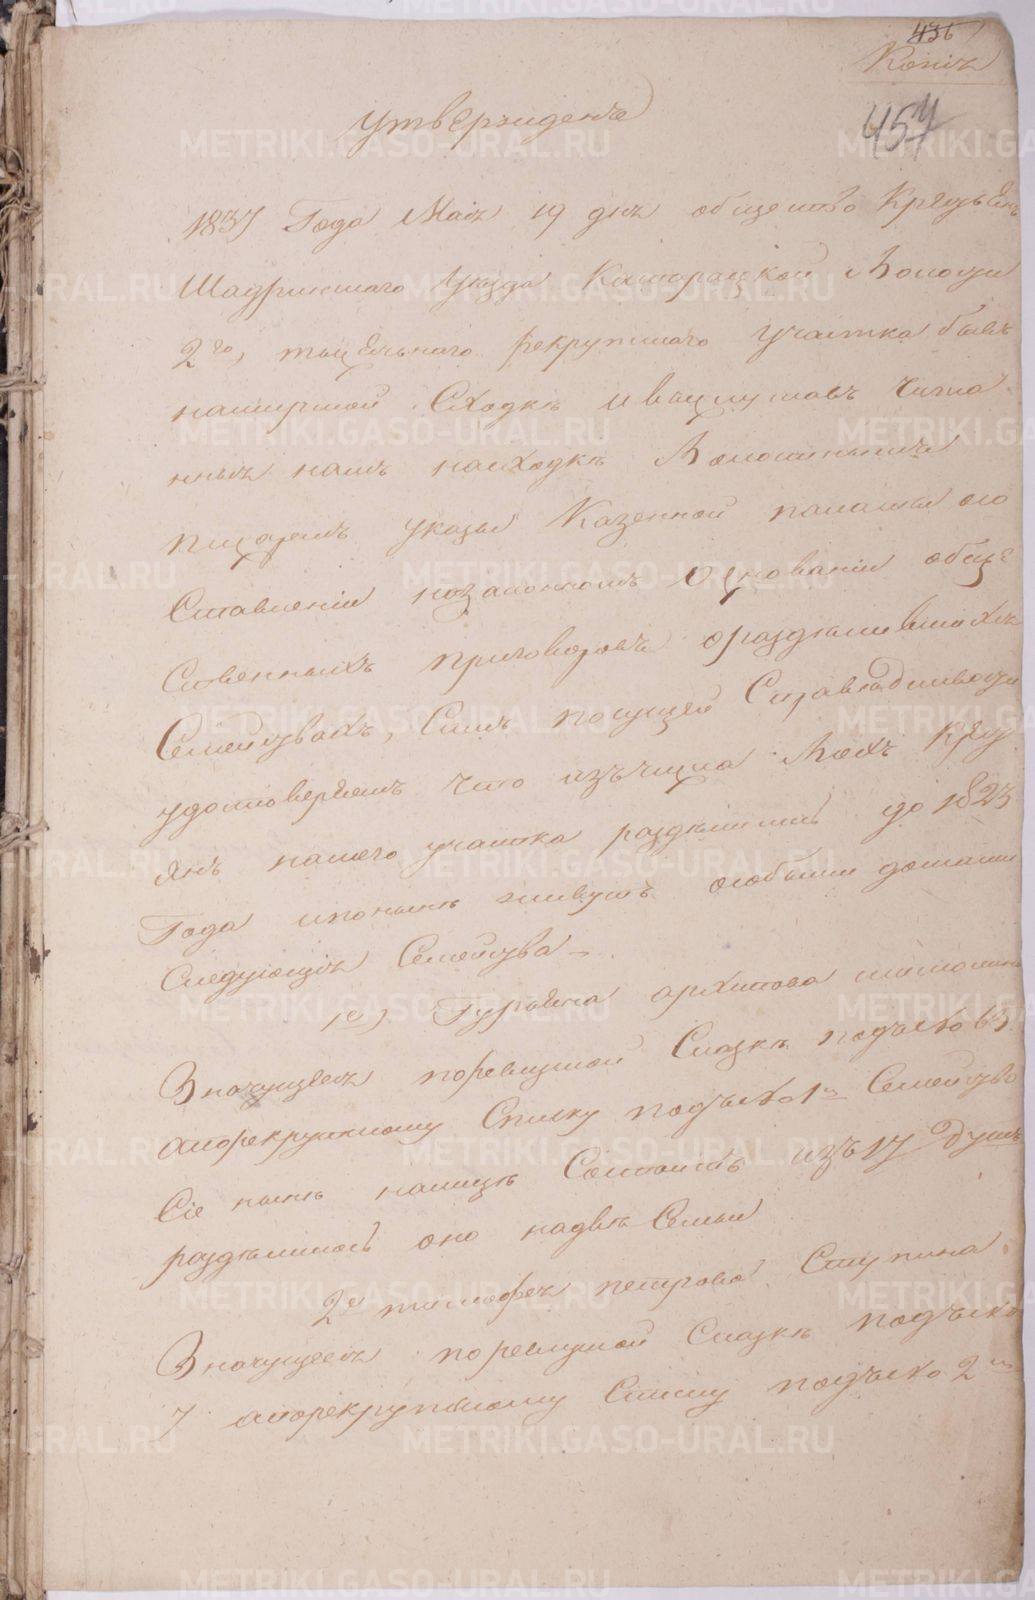 436
Копія
457
утвержденъ
1837 Года Маія 19 дня общество Крестьянъ
Шадринскаго Уезда Волости
2го, тысечьнаго рекрутскаго участка бывъ
намирской Сходкѣ ивыслушавъ Чита
нныя намъ насходкѣ Волостнымъ
писаремъ указы Казенной палаты осо
ставленіи назаконномъ основаніи обще
ственныхъ приговоровъ ораздѣлившихся
Семействахъ, Симъ посущей Справѣдливости
удостоверяемъ что изъчисла Всѣхъ Крест
янъ нашего участка раздѣлились до 1823
Года ипонынѣ живутъ особыми домами
Следующія Семейства
1е, Гурьяна архипова
Значущееся поревизской Сказкѣ подъ № 63
апорекрутскому Списку подъ № 1м Семейство
Сіе нынѣ налицѣ Состоитъ изъ 17 Душъ
раздѣлилось оно надвѣ Семьи
2е тимофея петрова Ступина
Значущееся поревизской Сказкѣ подъ №
7 апорекрутскому Списку подъ № 2м